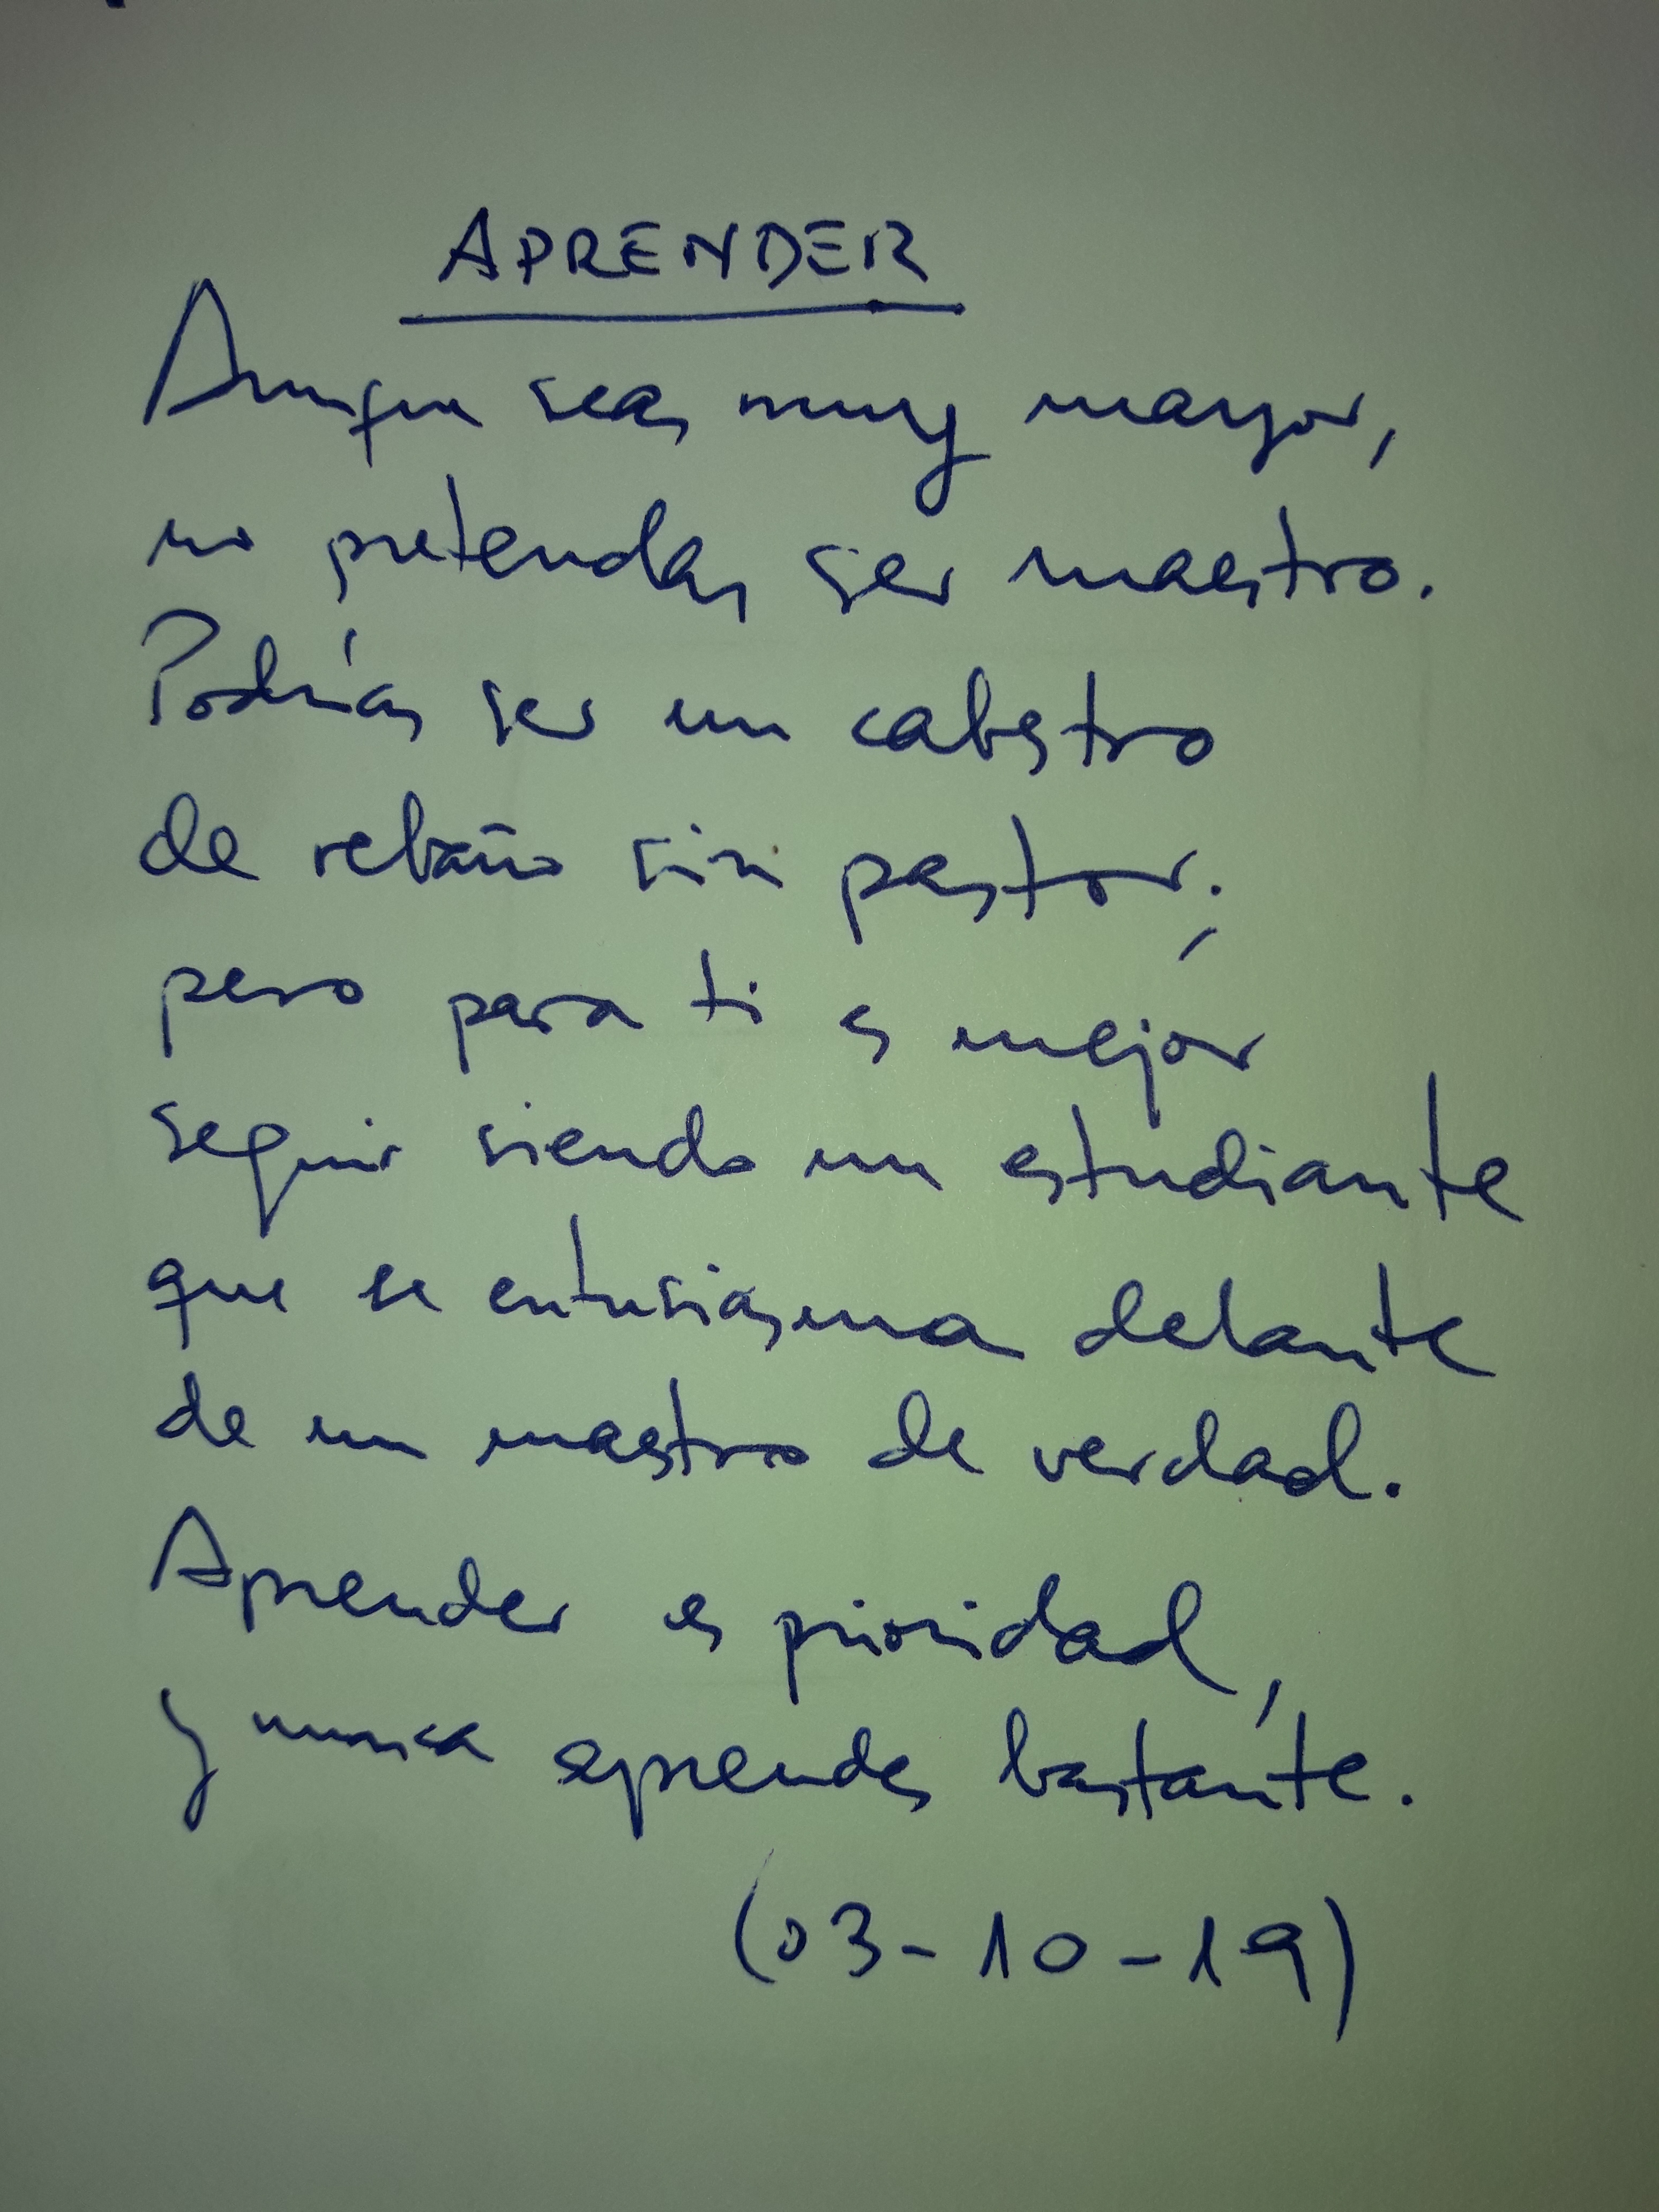 APRENDER
Aunque seas muy mayor,
no pretendas ser maestro.
Podrías ser un cabestro
de rebaño sin pastor;
pero para ti es mejor
seguir siendo un estudiante
que se entusiasma delante
de un maestro de verdad.
Aprender es prioridad,
y nunca aprendes bastante.
(03-10-19)